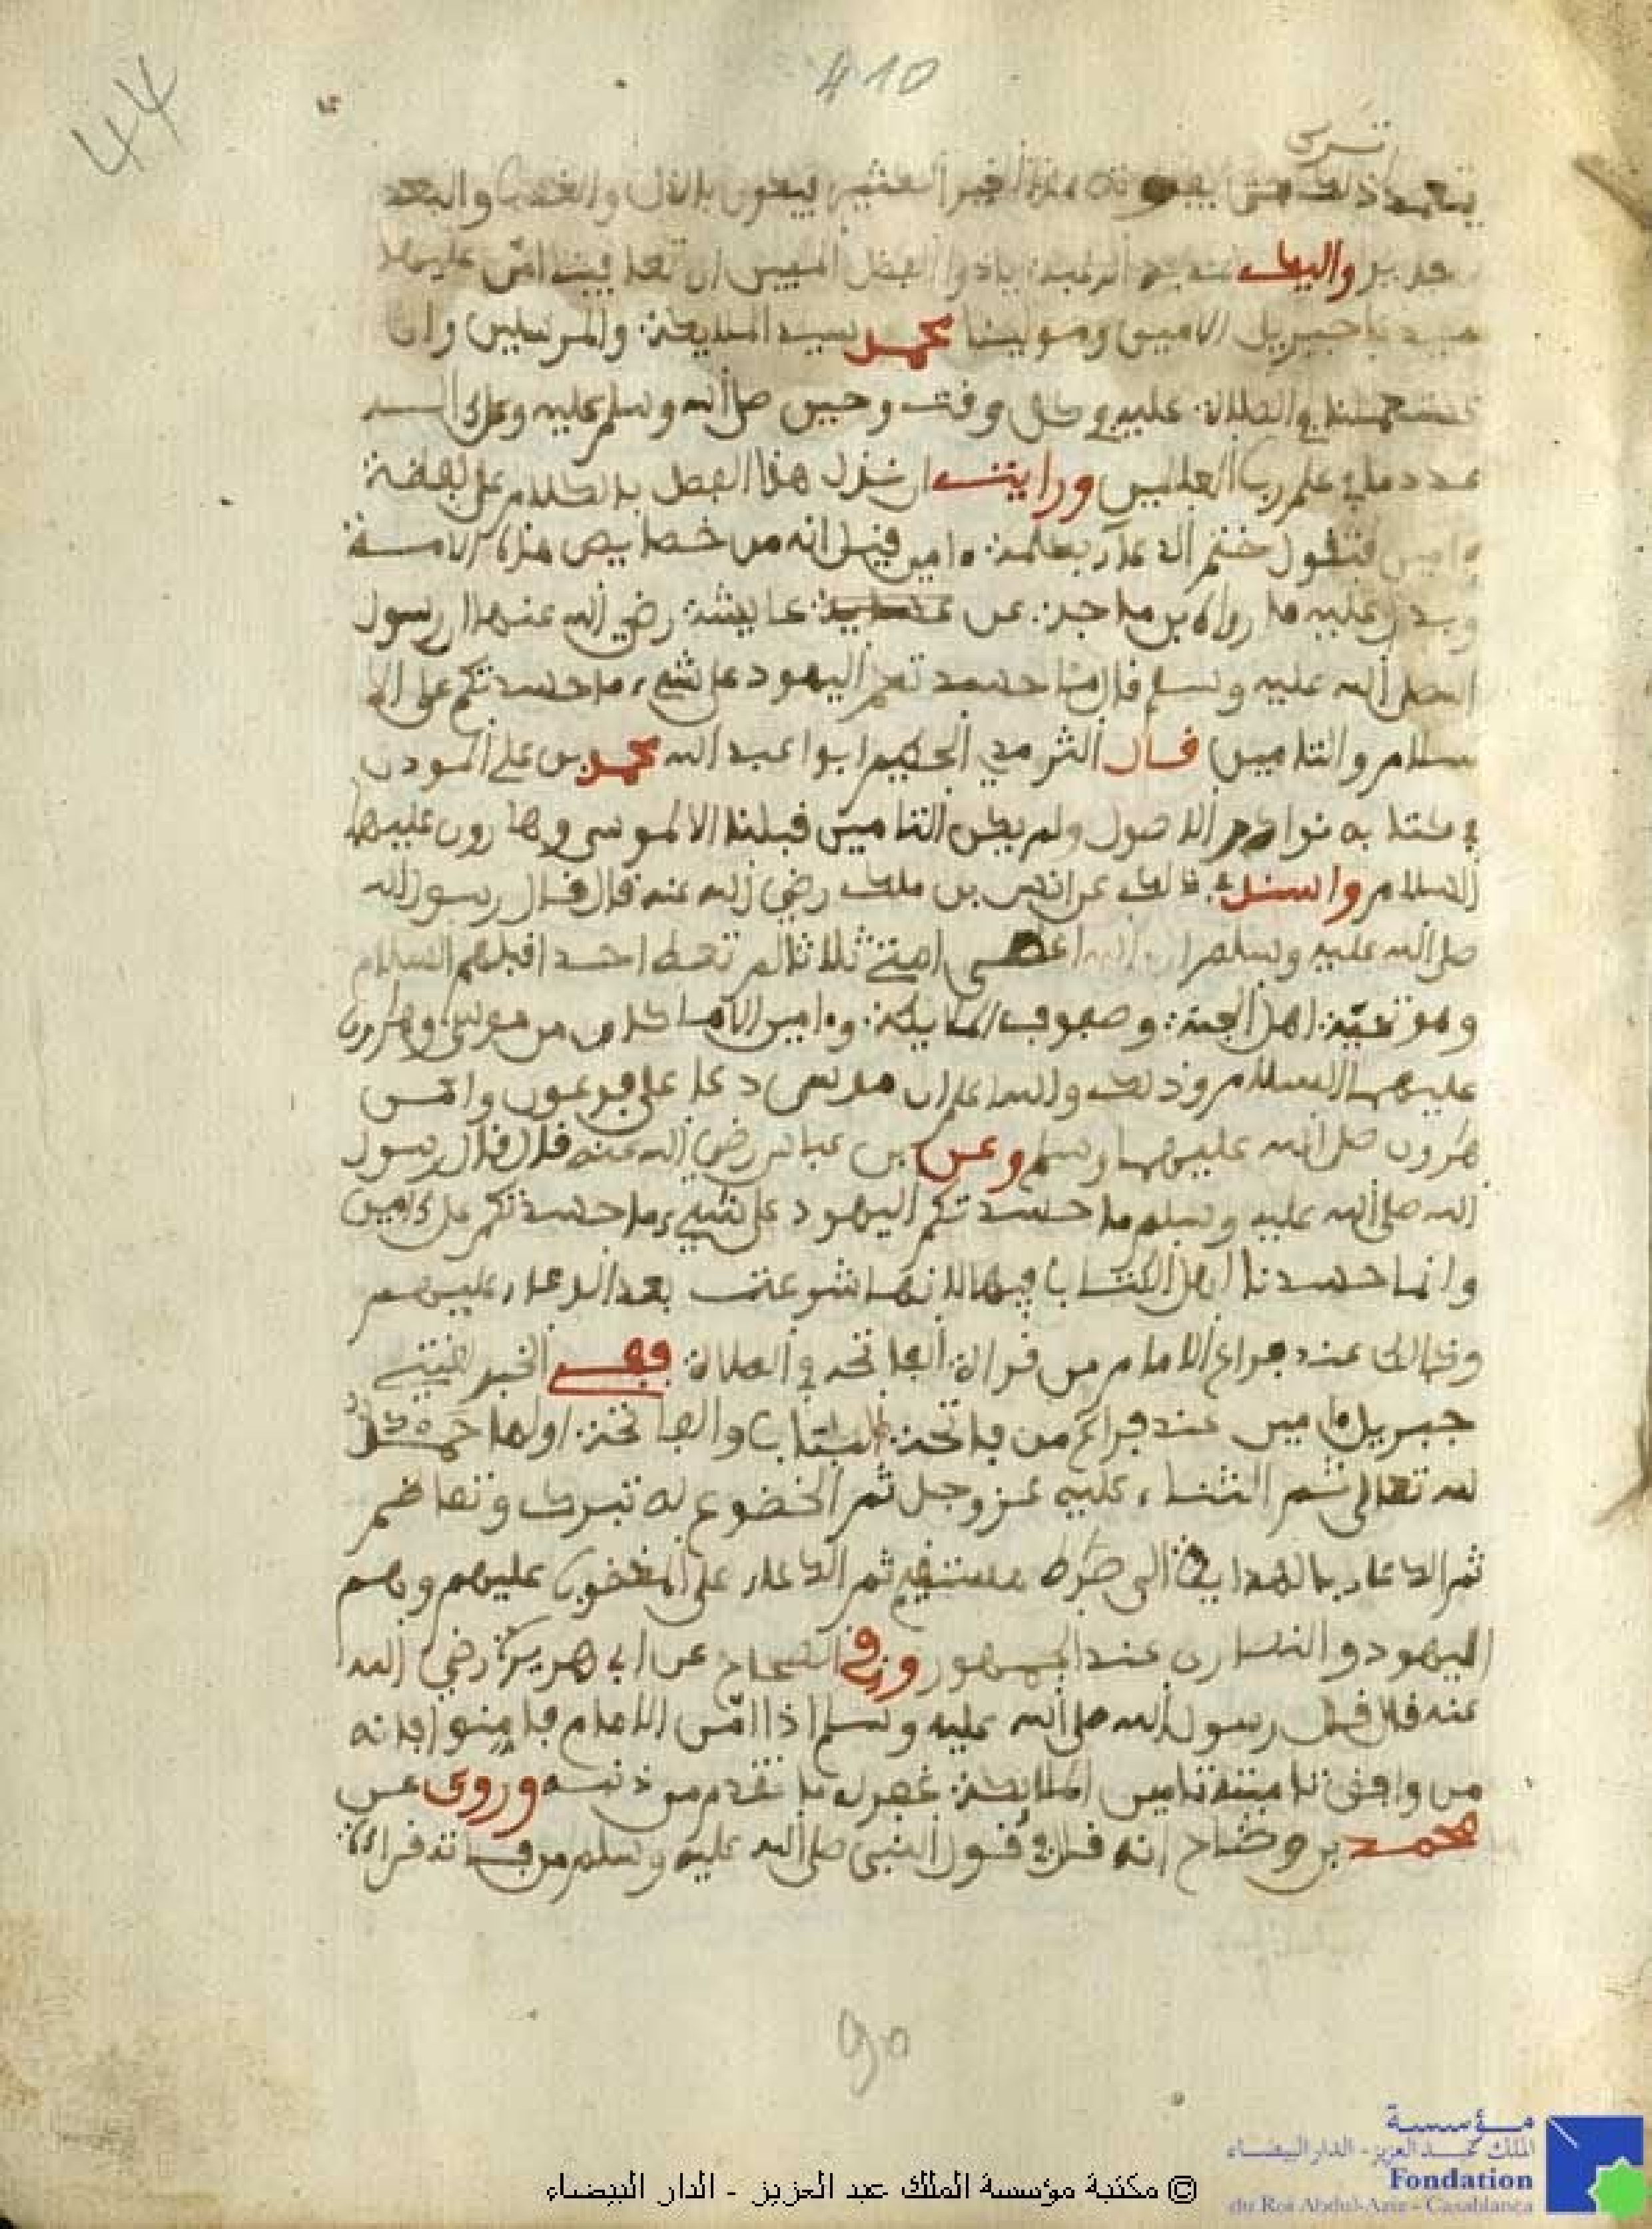 410
44
تترك
يتعمد ذلك حتى يفوته هذا الخير الكثير فيبعون بالذل والغضب والبعد
واليك الرغبة ياذوا الفضل المبين ان تعاقبنا امن عليها
جبريل الامين ومولينا محمد سيد الملايكة والمرسلين وان
تستعملنا في الصلاة عليه في كل وقت وحين صل الله وسلم عليه وعلى اله
عدد ما في علم رب العلمين ورايت ان نذيل هذا الفصل بالكلام على لفظة
ءامين فنقول ختم الدعاء بكلمة ءامين قيل انه من خصايص هذه الامة
ويدل عليه ما رواه بن ماجة عن عايشة رضي الله عنها ان رسول
الله صل الله عليه وسلم قال ما حسدتكم اليهود على شيء ما حسدتكم على الا
سلام والتامين قال الترمذي الحكيم ابوا عبد الله محمد بن علي المودن
في كتابه نوادر الاصول ولم يكن التامين قبلنا الا لموسى وهارون عليهما
السلام واسند في ذلك عن انس بن ملك رضي الله عنه قال قال رسول الله
صل الله عليه وسلم ان الله اعطى امتي ثلاثا لم تعط احد اقبلهم السلام
وهو تحية اهل الجنة وصفوف الملايكة وءامين الا ما كان من موسى وهارون
عليهما السلام وذلك والله اعلم ان موسى دعا على فرعون وامن
هارون صل الله عليهما وسلم وعن بن عباس رضي الله عنه قال قال رسول
الله صلى الله عليه وسلم ما حسدتكم اليهود على شيء ما حسدتكم على ءامين
وانما حسدنا اهل الكتاب فيها لانها شرعت بعد الدعاء عليهم
وذالك عند فراغ الامام من قراة الفاتحة في الصلاة ففي الخبر لقنني
جبريل ءامين عند فراغ من فاتحة الكتاب والفاتحة اولها حمد
لله تعالى ثم الثناء عليه عز وجل ثم الخضوع له تبرك وتعاضم
ثم الدعاء بالهداية الى صراط مستقيم ثم الدعاء على المغضوب عليهم وهم
اليهود والنصارى عند الجمهور وفي الصحاح عن ابي هريرة رضي الله
عنه قال قال رسول الله صل الله عليه وسلم اذا امن الامام فامنوا فانه
من وافق تامينه تامين الملايكة غفر له ما تقدم من ذنبه وروى عن
محمد بن وضاح انه قال في قول النبي صل الله عليه وسلم من فاتته قراة
90
مؤسسة
الملك عبد العزيز - الدار البيضاء
Fondation
du Roi Abdul-Aziz - Casablanca
© مكتبة مؤسسة الملك عبد العزيز - الدار البيضاء